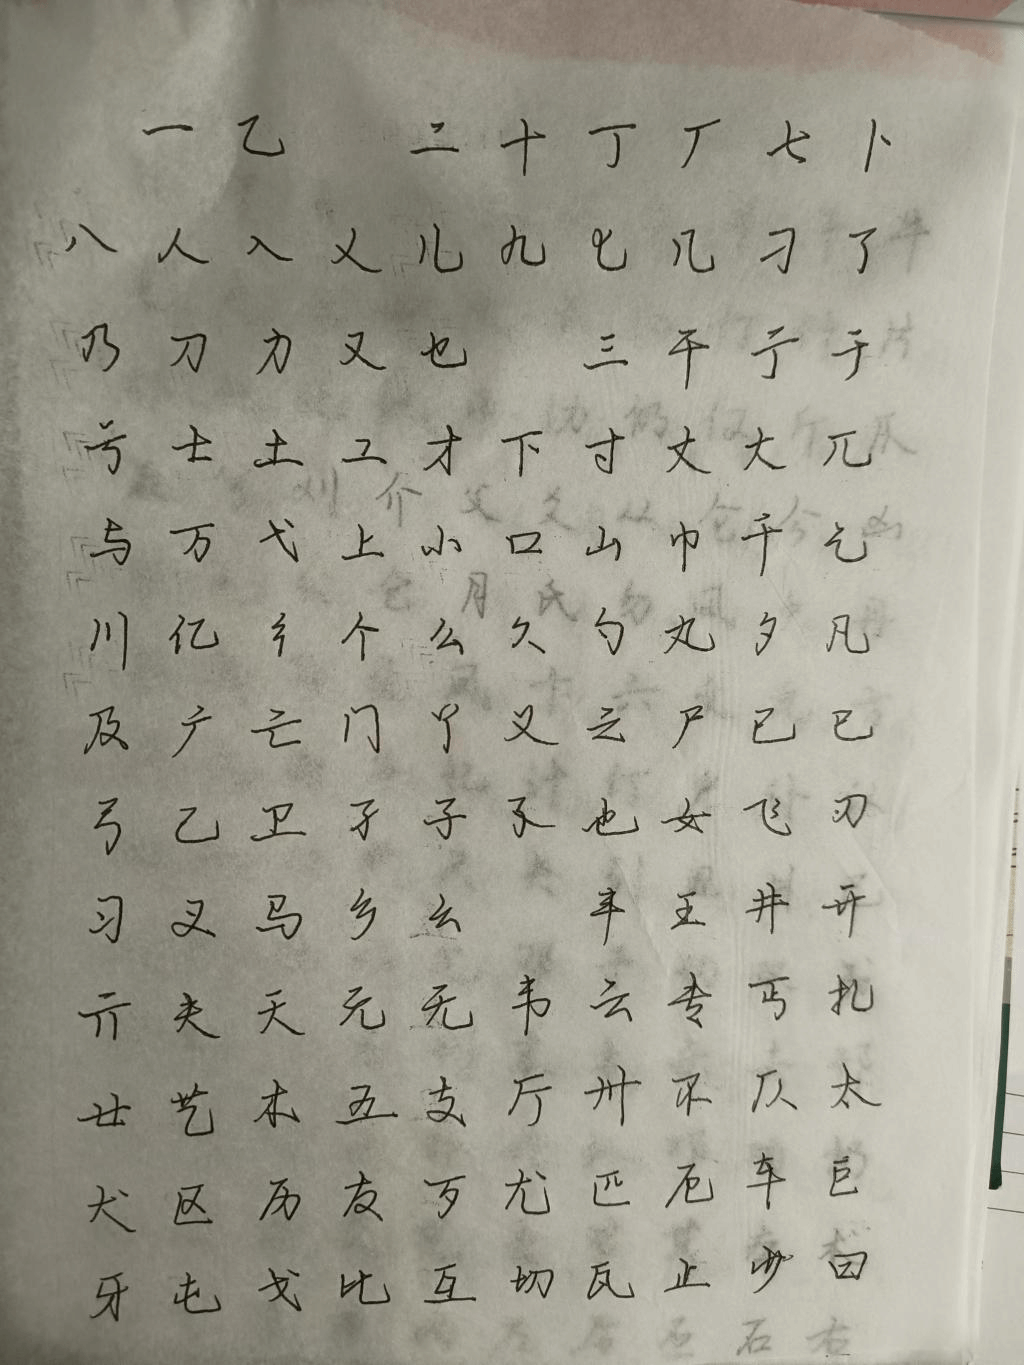 一 乙 二 十 丁 厂 七 卜
八 人 入 乂 儿 九 匕 几 刁 了
乃 刀 力 又 乜 三 干 亍 于
亏 士 土 工 才 下 寸 丈 大 兀
与 万 弋 上 小 口 山 巾 千 乞
川 亿 彳 个 么 久 勺 丸 夕 凡
及 广 亡 门 丫 义 之 尸 已 巳
弓 己 卫 孑 子 孓 也 女 飞 刃
习 叉 马 乡 幺 丰 王 井 开
亓 夫 天 元 无 韦 云 专 丐 扎
廿 艺 木 五 支 厅 卅 不 仄 太
犬 区 历 友 歹 尤 匹 厄 车 巨
牙 屯 戈 比 互 切 瓦 止 少 曰